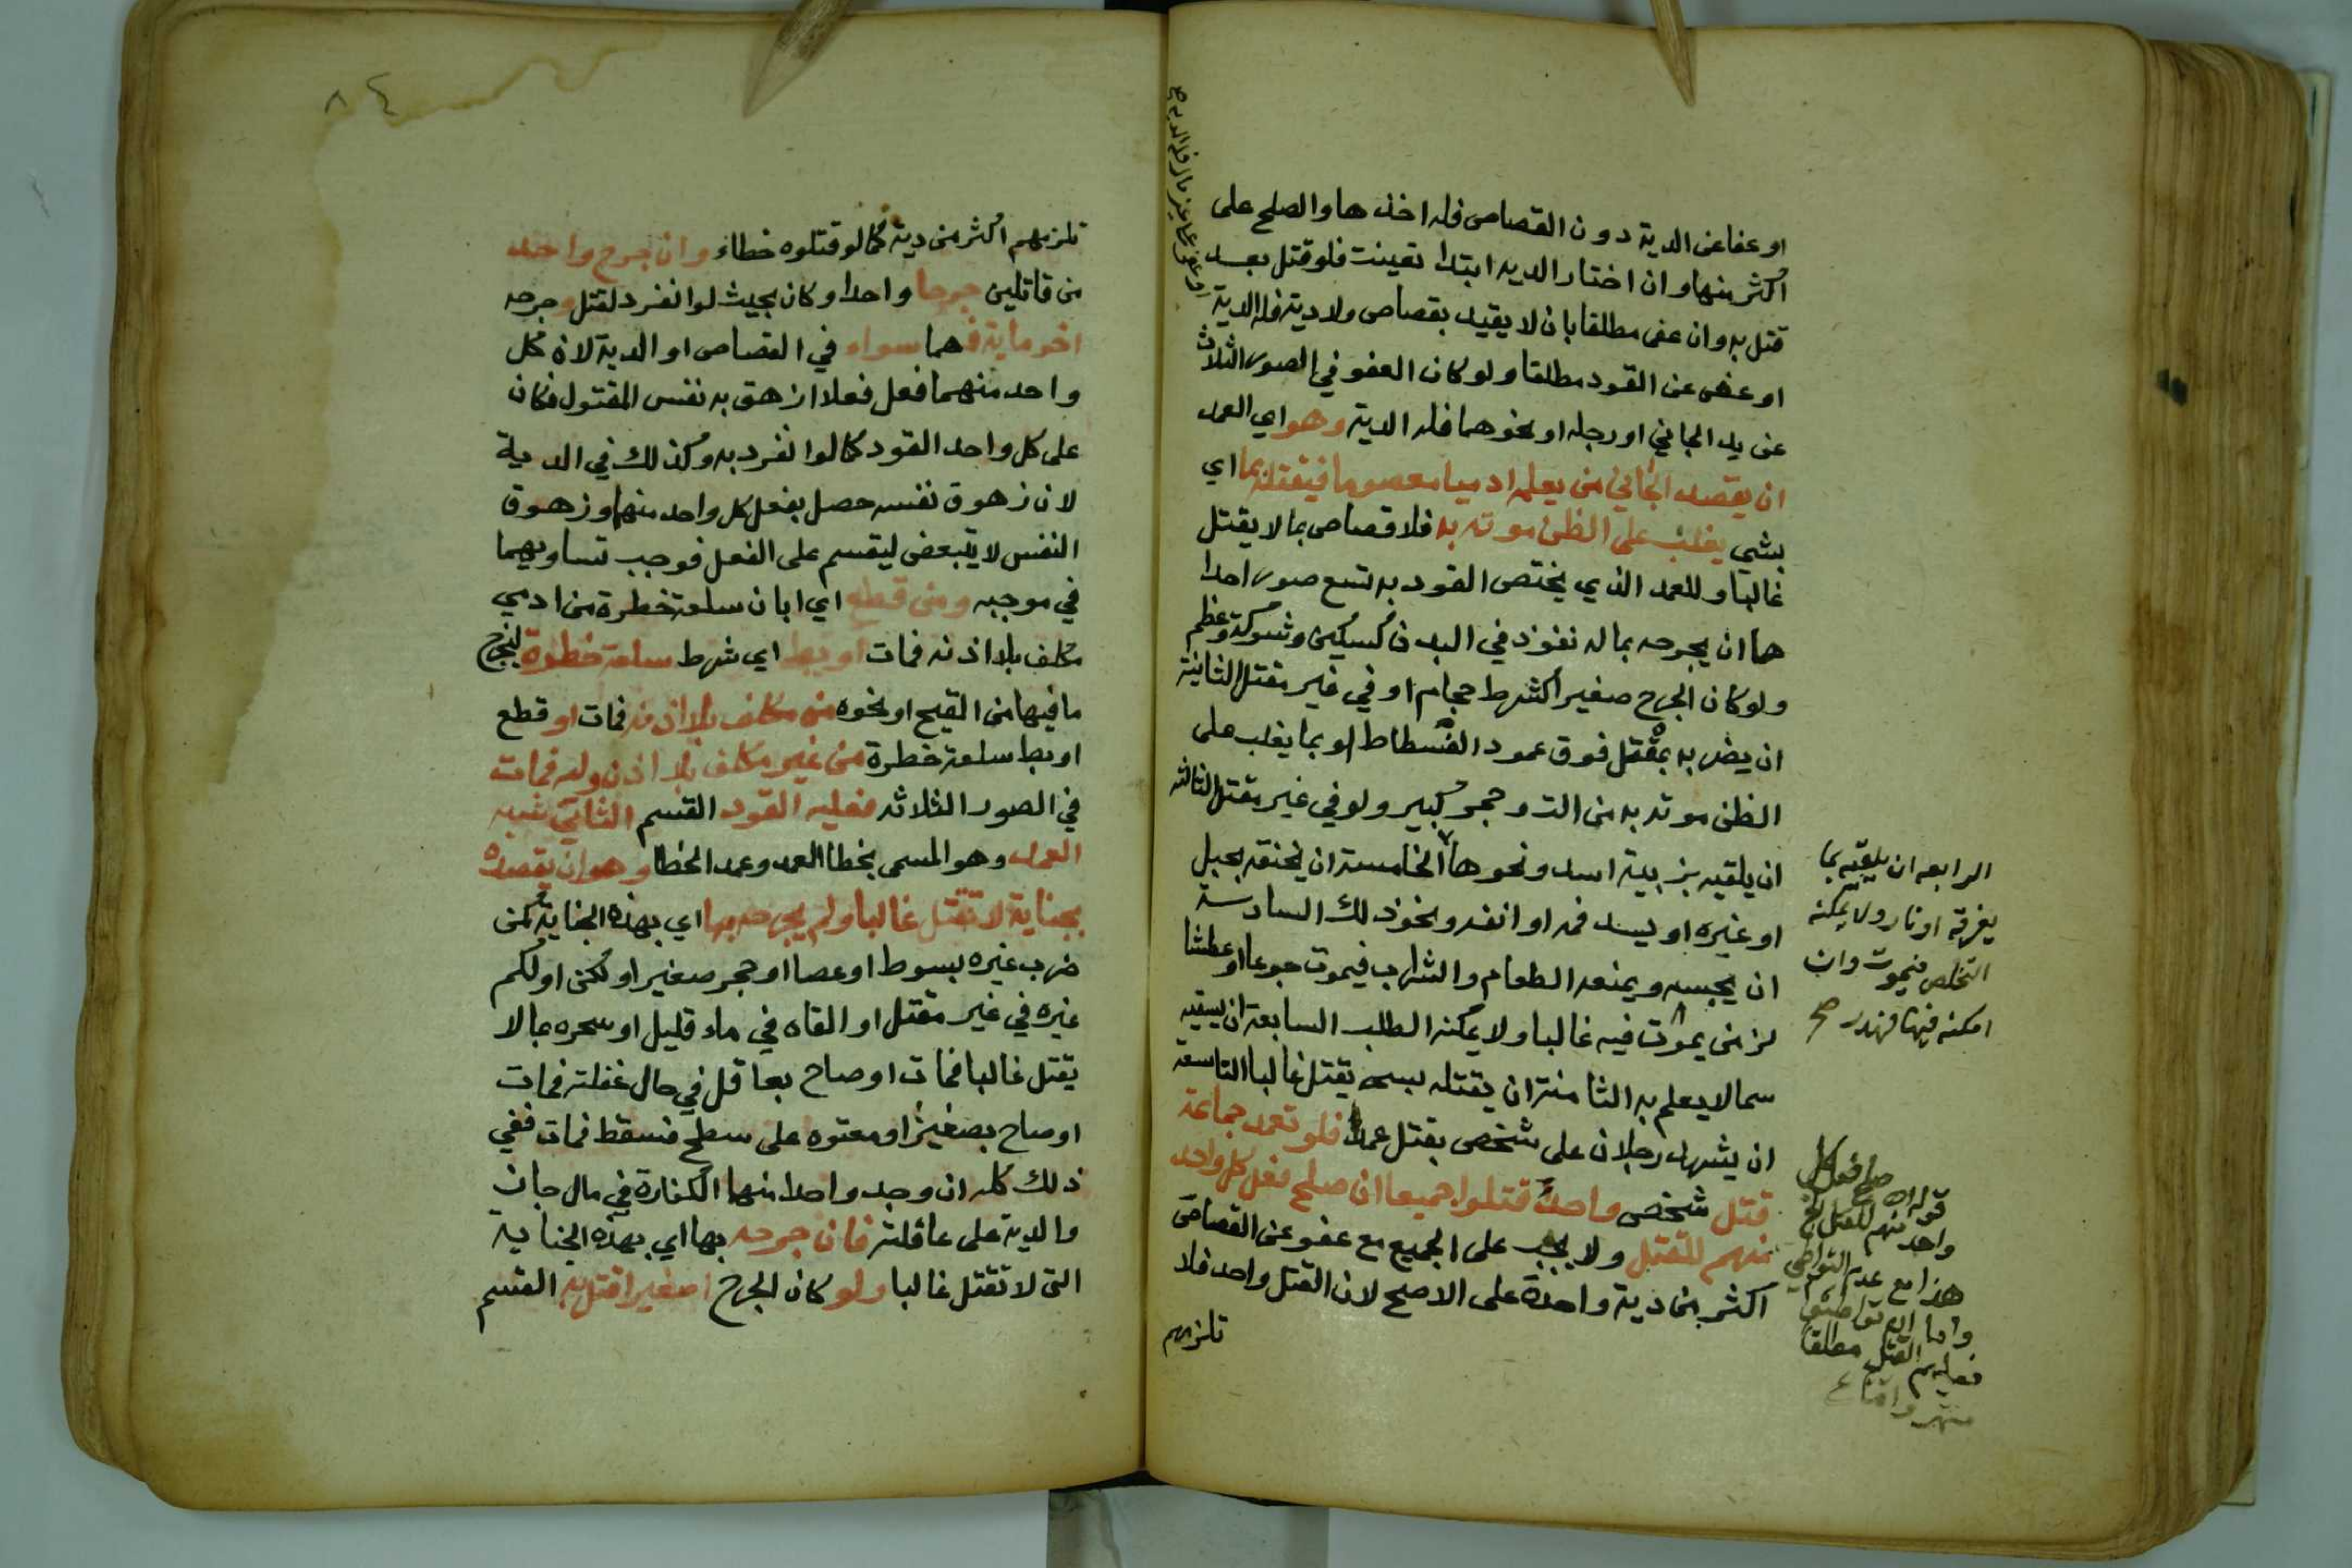 او عفا عن الدية دون القصاص فله اخذها والصلح على
اكثر منها وان اختار الديه ابتدا تعينت فلو قتل بعد
قتل به وان عفى مطلقا بان لا يقيد بقصاص ولا دية فله الدية
او عفى عن القود مطلقا ولو كان العفو في الصور الثلاث
عن يد الجاني او رجله او نحوهما فله الدية وهو اي العمد
ان يقصد الجاني من يعلمه ادميا معصوما فيقتله بما اي
بشي يغلب على الظن موته به فلا قصاص بما لا يقتل
غالبا وللعمد الذي يختص القود به تسع صور احدا
ها ان يجرحه بماله نفوذ في البدن كسكين وشوكة وعظم
ولو كان الجرح صغيرا كشرط حجام او في غير مقتل الثانية
ان يضربه بمثقل فوق عمود الفسطاط او بما يغلب على
الظن موته به من الت وحجر كبير ولو في غير مقتل الثالثه
ان يلقيه بزبية اسد ونحوها الخامسة ان يخنقه بحبل
او غيره او يسد فمه او انفه ونحو ذلك السادسة
ان يحبسه ويمنعه الطعام والشراب فيموت جوعا او عطشا
لزمن يموت فيه غالبا ولا يمكنه الطلب السابعة ان يسقيه
سما لا يعلم به الثامنة ان يقتله بسحر يقتل غالبا التاسعة
ان يشهد رجلان على شخص بقتل عمد فلو تعمد جماعة
قتل شخص واحد قتلوا جميعا ان صلح فعل كل واحد
منهم للقتل ولا يجب على الجميع مع عفو عن القصاص
اكثر من دية واحدة على الاصح لان القتل واحد فلا
تلزمهم
الرابعه ان يلقيه بما
يغرقه او نار ولا يمكنه
التخلص فيموت وان
امكنه فيهما فهدر صح
قوله ان صلح فعل كل
واحد منهم للقتل الخ
هذا مع عدم التواطي
واما ان تواطئوا
فعليهم القتل مطلقا
تلزمهم اكثر من دية كما لو قتلوه خطاء وان جرح واحد
من قاتلين جرحا واحدا وكان بحيث لو انفرد لقتل وجرحه
اخر ماية فهما سواء في القصاص او الدية لان كل
واحد منهما فعل فعلا ازهق به نفس المقتول فكان
على كل واحد القود كما لو انفرد به وكذلك في الدية
لان زهوق نفسه حصل بفعل كل واحد منهما وزهوق
النفس لا يتبعض ليقسم على الفعل فوجب تساويهما
في موجبه ومن قطع اي ابان سلعة خطرة من ادمي
مكلف بلا اذنه فمات او بط اي شرط سلعة خطرة ليخرج
ما فيها من القيح او نحوه من مكلف بلا اذنه فمات او قطع
او بط سلعة خطرة من غير مكلف بلا اذن وليه فمات
في الصور الثلاثه فعليه القود القسم الثاني شبه
العمد وهو المسمى بخطا العمد وعمد الخطا وهو ان يقصده
بجناية لا تقتل غالبا ولم يجرحه بها اي بهذه الجناية كمن
ضرب غيره بسوط او عصا او حجر صغير او لكز او لكم
غيره في غير مقتل او القاه في ماء قليل او سحره بما لا
يقتل غالبا فمات او صاح بعاقل في حال غفلته فمات
او صاح بصغير او معتوه على سطح فسقط فمات ففي
ذلك كله ان وجد واحد منها الكفارة في مال جان
والدية على عاقلته فان جرحه بها اي بهذه الجناية
التي لا تقتل غالبا ولو كان الجرح صغيرا قتل به القسم
٨٤